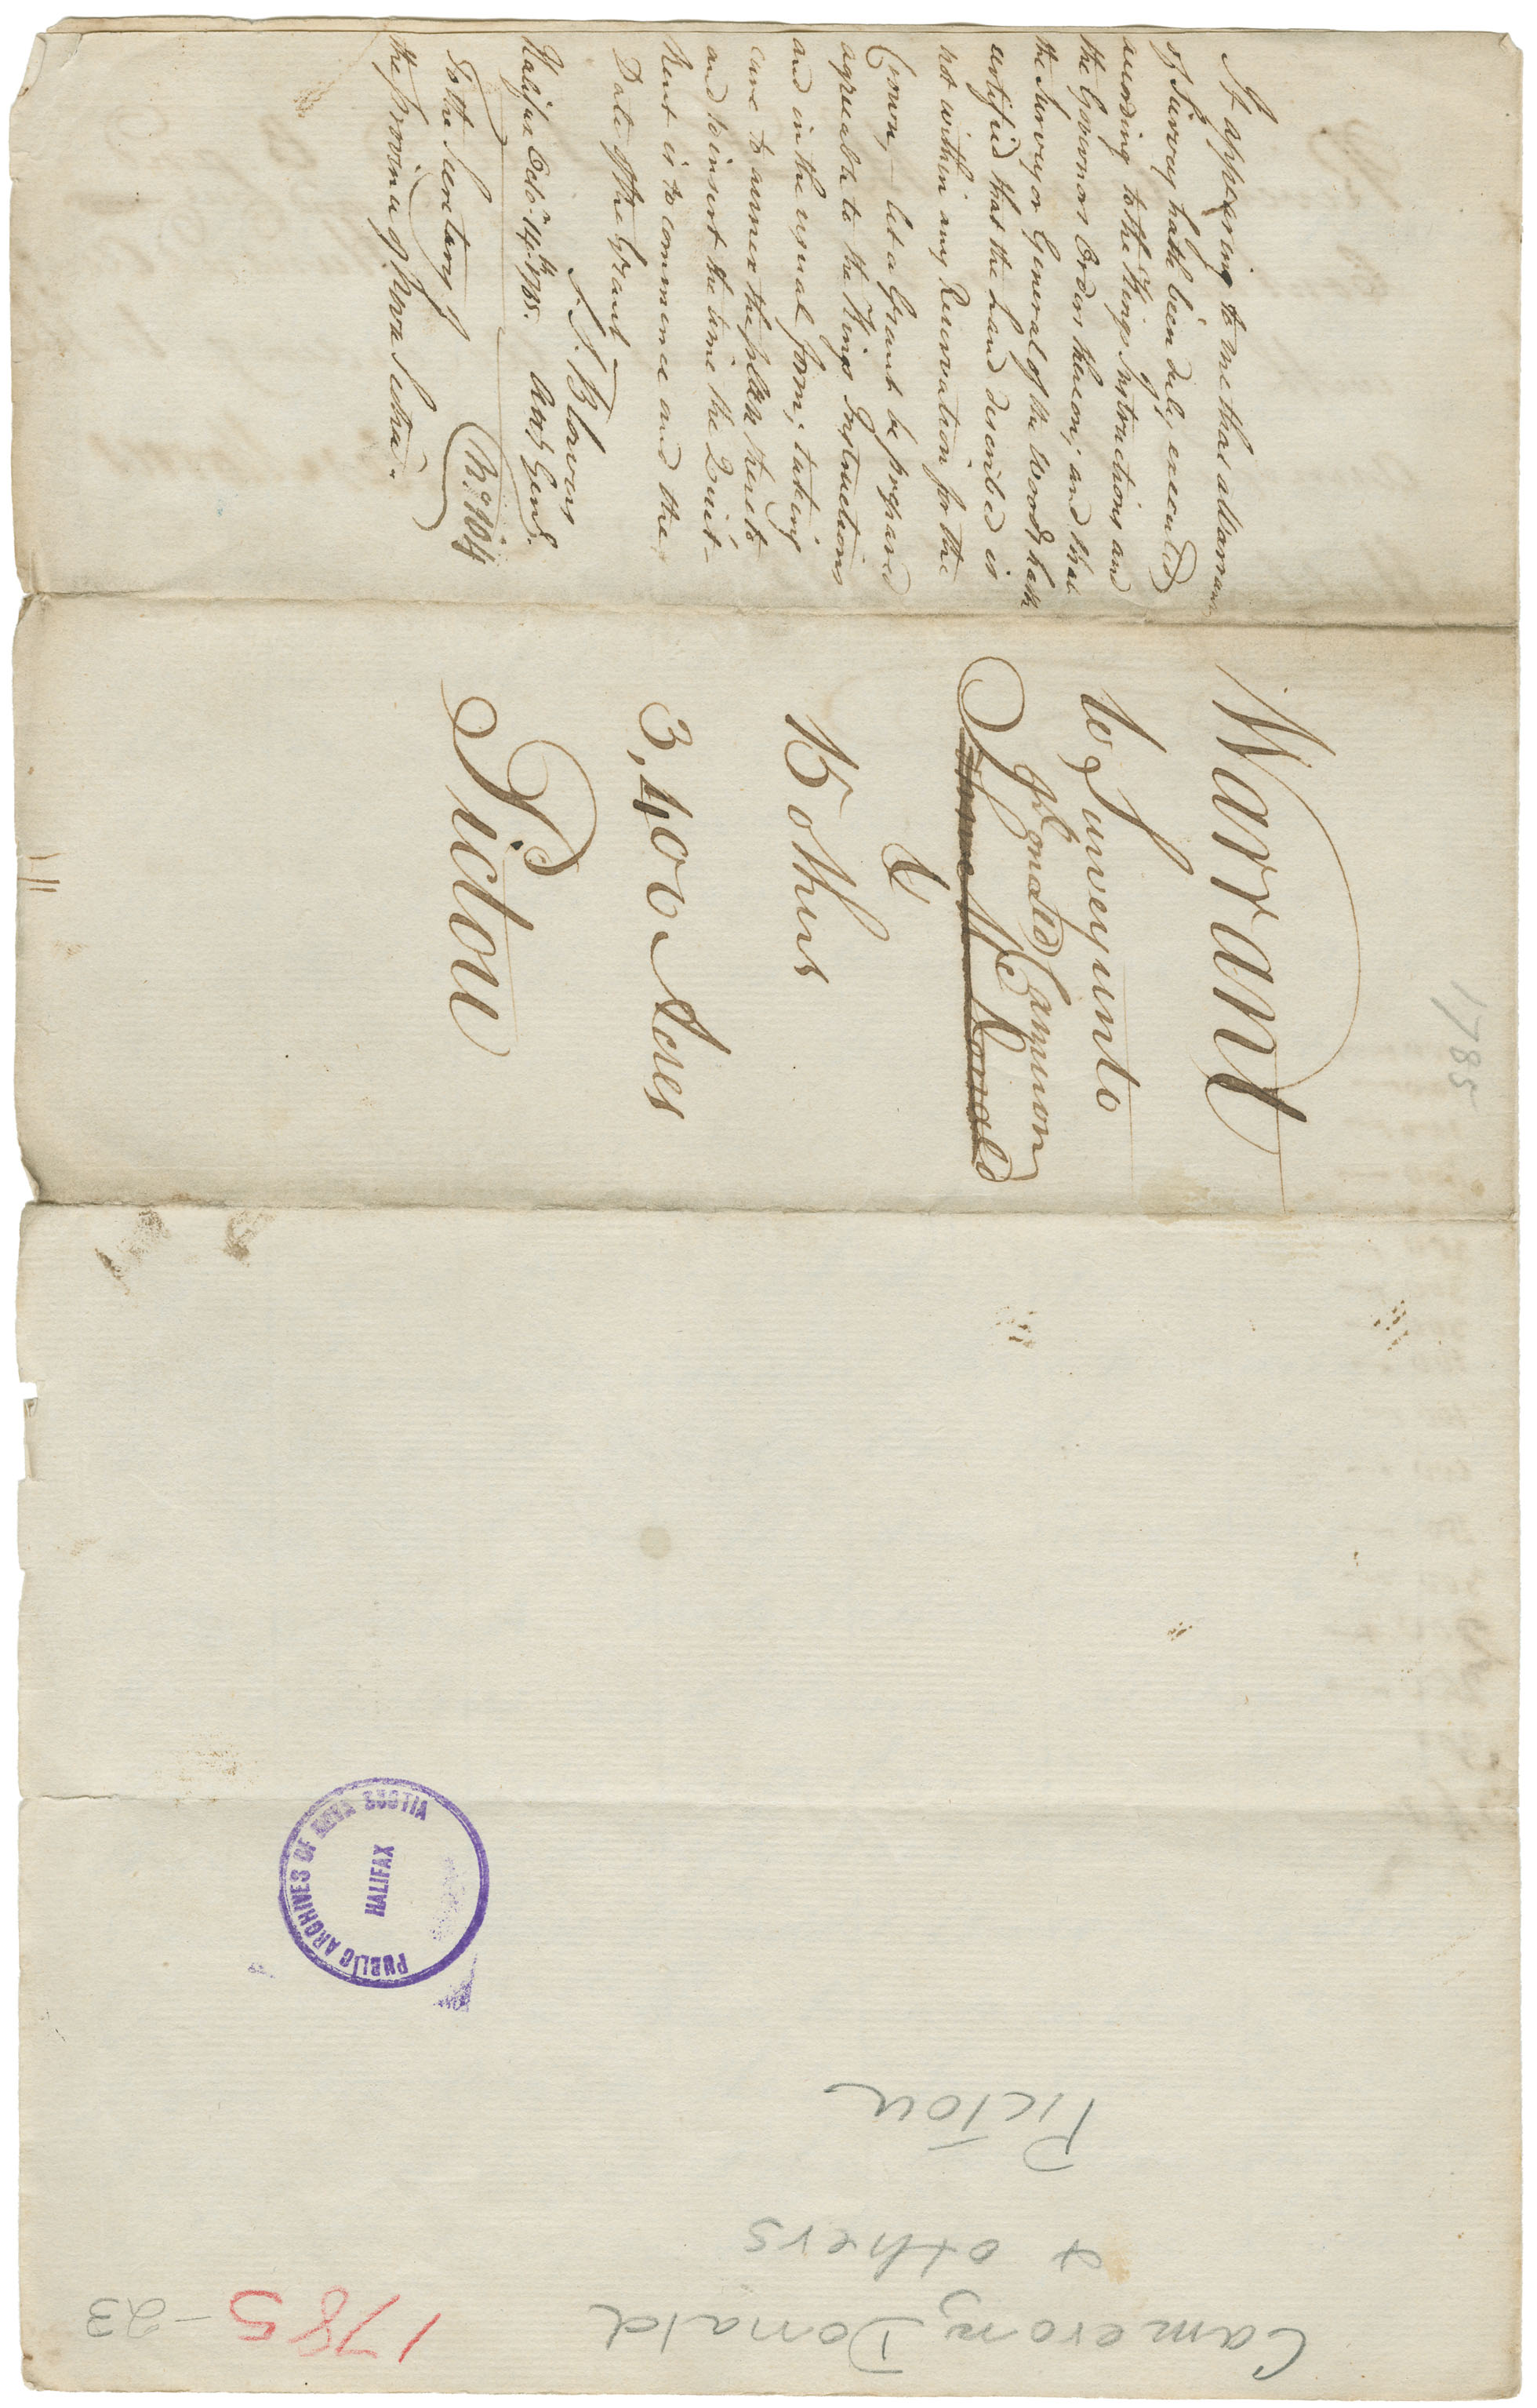 It appearing to me that a Warrant
of Survey hath been duly executed
according to the Kings Instructions and
the Governors Orders thereon; and that
the Surveyor General of the Woods hath
certified that the Land described is
not within any Reservation for the
Crown, let a Grant be prepared
agreable to the Kings Instructions
and in the usual form; taking
care to annex the plan thereto
and to insert the time the Quit-
Rent is to commence and the
Date of the Grant
S. S. Blowers
Halifax Octr. 14th 1785. Atty Genl.
To the Secretary of
the province of Nova Scotia.
No. 104
Warrant
to Survey unto
Donald Cameron
McDonald
&
15 others
3,400 Acres
Pictou
1785
PUBLIC ARCHIVES OF NOVA SCOTIA
HALIFAX
Cameron, Donald
& others
Pictou
1785 - 23